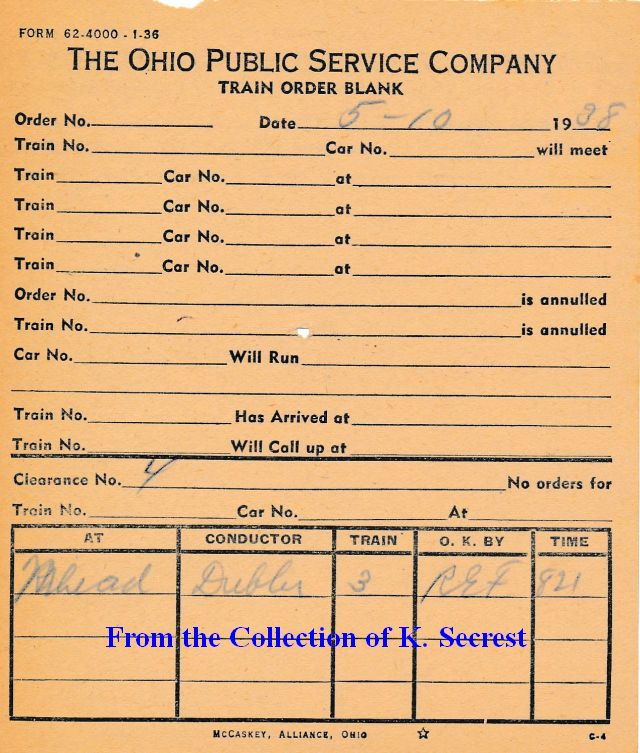 FORM 62-4000 - 1-36
THE OHIO PUBLIC SERVICE COMPANY
TRAIN ORDER BLANK
Order No. Date 5-10 1938
Train No. Car No. will meet
Train Car No. at
Train Car No. at
Train Car No. at
Train Car No. at
Order No. is annulled
Train No. is annulled
Car No. Will Run
Train No. Has Arrived at
Train No. Will Call up at
Clearance No. 4 No orders for
Train No. Car No. At
AT CONDUCTOR TRAIN O. K. BY TIME
3 821
From the Collection of K. Secrest
McCASKEY, ALLIANCE, OHIO ☆ C-4